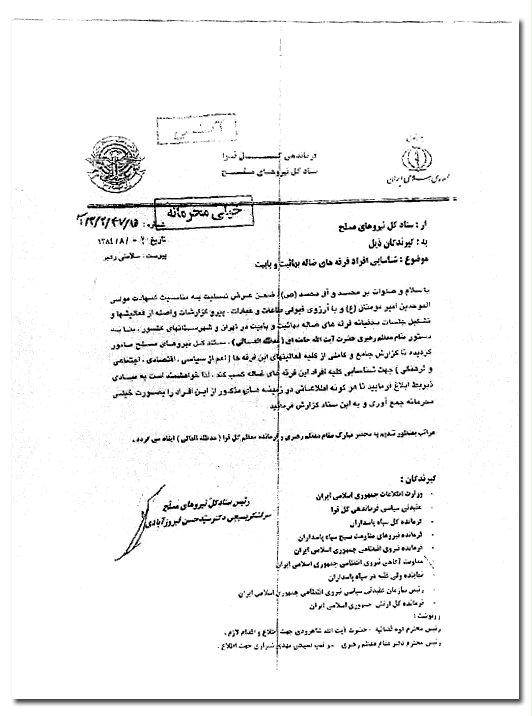 آنی
فرماندهی کل قوا
ستاد کل نیروهای مسلح
جمهوری اسلامی ایران
خیلی محرمانه
شماره:
تاریخ: ۱۳۸۴/۸/
پیوست:
از : ستاد کل نیروهای مسلح
به : گیرندگان ذیل
موضوع : شناسایی افراد فرقه های ضاله بهائیت و بابیت
با سلام و صلوات بر محمد و آل محمد (ص) ضمن عرض تسلیت به مناسبت شهادت مولی
الموحدین امیر مومنان (ع) و با آرزوی قبولی طاعات و عبادات . پیرو گزارشات واصله از فعالیتها و
تشکیل جلسات مخفیانه فرقه های ضاله بهائیت و بابیت در تهران و شهرستانهای کشور، بنا به
دستور مقام معظم رهبری حضرت آیت الله خامنه ای (مدظله العالی) . ستاد کل نیروهای مسلح مامور
گردیده تا گزارش جامع و کاملی از کلیه فعالیتهای این فرقه ها ( اعم از سیاسی ، اقتصادی ، اجتماعی
و فرهنگی ) جهت شناسایی کلیه افراد این فرقه های ضاله کسب کند . لذا خواهشمند است به مبادی
ذیربط ابلاغ فرمایید تا هر گونه اطلاعاتی در زمینه های مذکور از این افراد را بصورت خیلی
محرمانه جمع آوری و به این ستاد گزارش فرمایید
مراتب بمنظور تقدیم به محضر مبارک مقام معظم رهبری و فرمانده معظم کل قوا ( مدظله العالی ) ایفاد می گردد .
رئیس ستاد کل نیروهای مسلح
سرلشکر بسیجی دکتر سید حسن فیروزآبادی
گیرندگان :
وزارت اطلاعات جمهوری اسلامی ایران
عقیدتی سیاسی فرماندهی کل قوا
فرمانده کل سپاه پاسداران
فرمانده نیروهای مقاومت بسیج سپاه پاسداران
فرمانده نیروی انتظامی جمهوری اسلامی ایران
معاونت آگاهی نیروی انتظامی جمهوری اسلامی ایران
نماینده ولی فقیه در سپاه پاسداران
رئیس سازمان عقیدتی سیاسی نیروی انتظامی جمهوری اسلامی ایران
فرمانده کل ارتش جمهوری اسلامی ایران
رونوشت :
رئیس محترم قوه قضائیه - حضرت آیت الله شاهرودی جهت اطلاع و اقدام لازم .
رئیس محترم دفتر مقام معظم رهبری - سرتیپ بسیجی مهدی شیرازی جهت اطلاع .